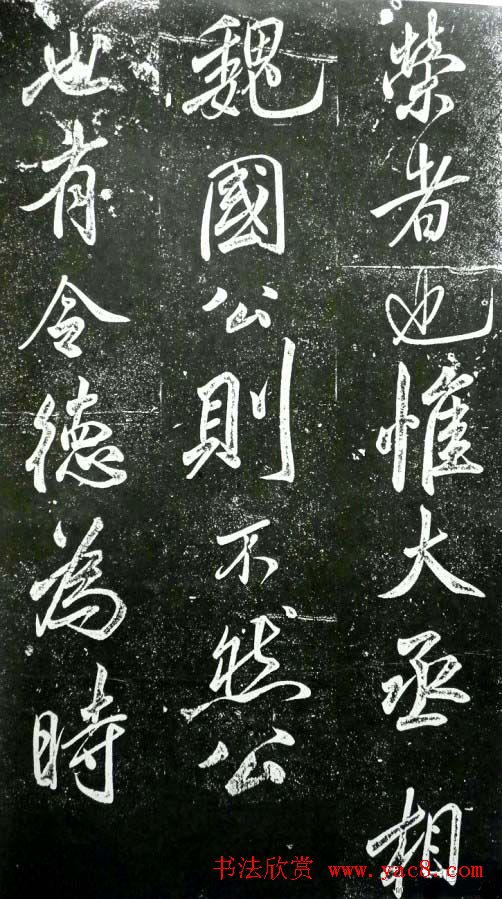 榮者也惟大丞相
魏國公則不然公
世有令德為時
书法欣赏 www.yac8.com